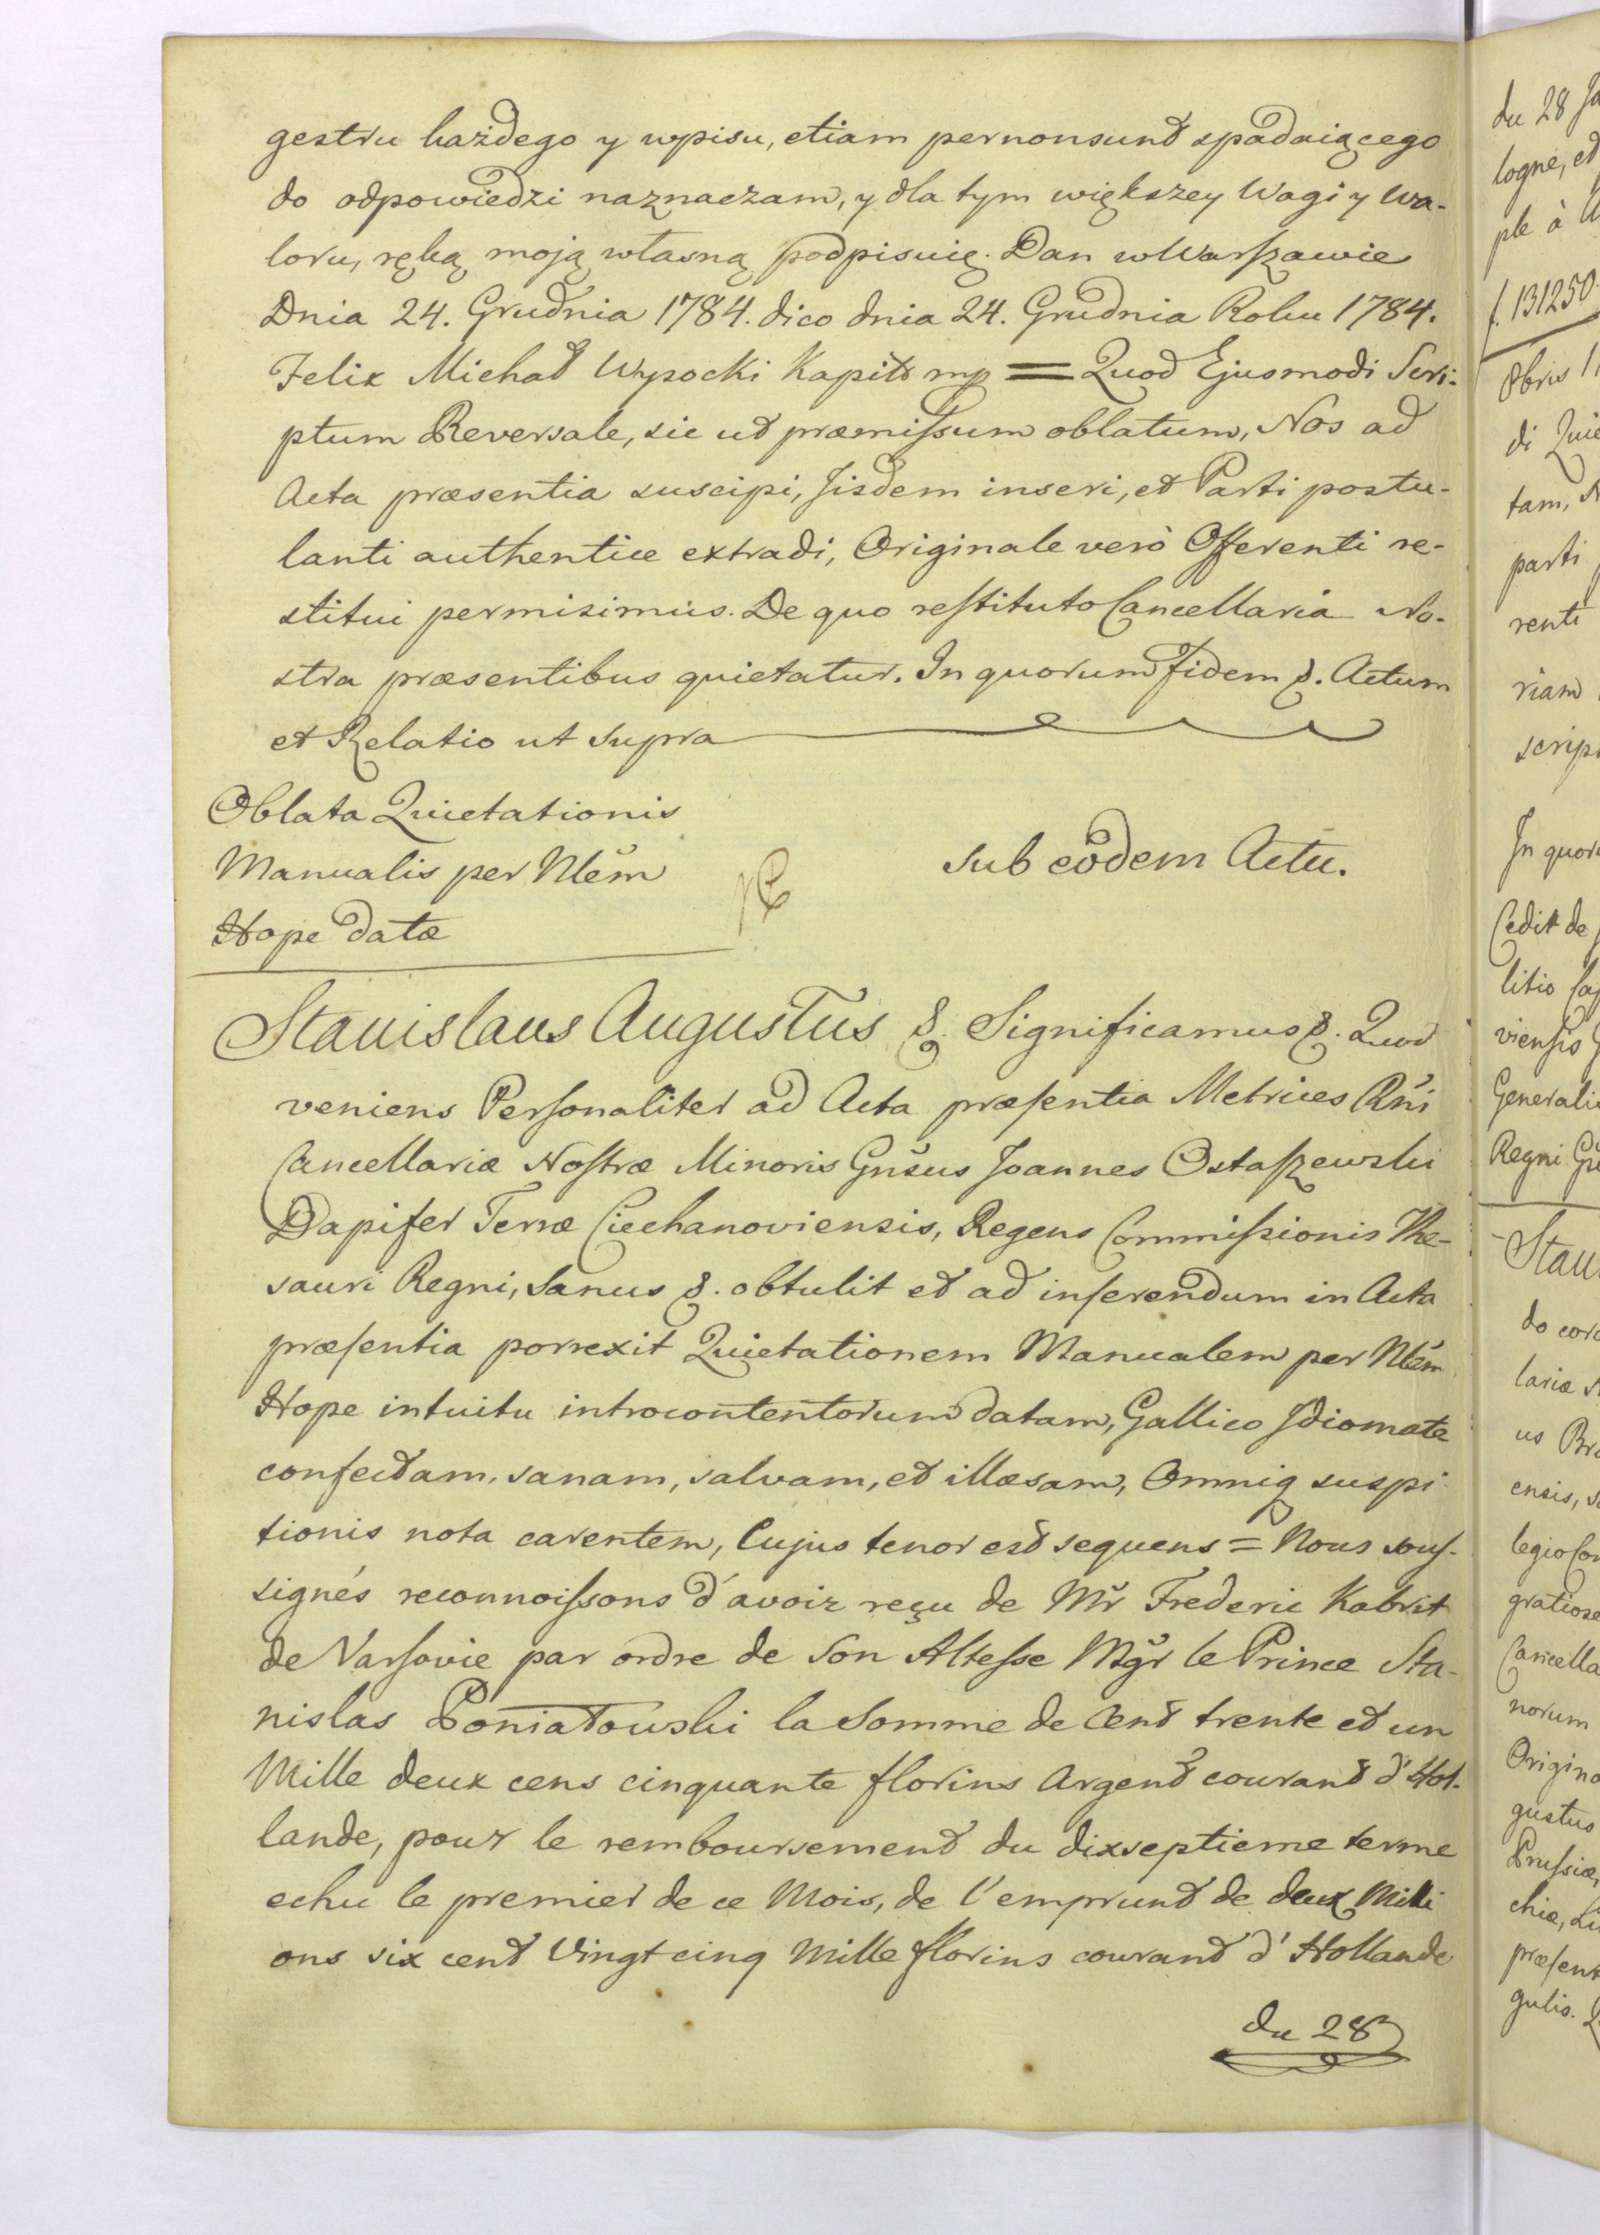 gestru każdego y wpisu, etiam pernonsunt spadaiącego
do odpowiedzi naznaczam, y dla tym większey Wagi y Wa-
loru, ręką moją własną podpisuię. Dan w Warszawie
Dnia 24. Grudnia 1784. dico dnia 24. Grudnia Roku 1784.
Felix Michał Wysocki Kapit mp = Quod Ejusmodi Scri-
ptum Reversale, sic ut præmissum oblatum, Nos ad
Acta præsentia suscipi, Jisdem inseri, et Parti postu-
lanti authentice extradi, Originale verò Offerenti re-
stitui permisimus. De quo restituto Cancellaria No-
stra præsentibus quietatur. In quorum Fidem &. Actum
et Relatio ut supra
Oblata Quietationis
Manualis per Nlem
Hope datæ
Sub eodem Actu.
Stanislaus Augustus &. Significamus &. Quod
veniens Personaliter ad Acta præsentia Metrices Rñi
Cancellariæ Nostræ Minoris Gnsus Joannes Ostaszewski
Dapifer Terræ Ciechanoviensis, Regens Commissionis The-
sauri Regni, Sanus &. obtulit et ad inserendum in Acta
præsentia porrexit Quietationem Manualem per Nlem
Hope intuitu introcontentorum datam, Gallico Jdiomate
confectam, sanam, salvam, et illæsam, Omniq suspi-
tionis nota carentem, Cujus tenor est sequens = Nous sous-
signés reconnoissons d'avoir reçu de Mr Frederic Kabrit
de Varsovie par ordre de Son Altesse Mgr le Prince Sta-
nislas Poniatowski la Somme de Cent trente et un
Mille deux cens cinquante florins Argent courant d'Hol-
lande, pour le remboursement du dixseptieme terme
echu le premier de ce Mois, de l'emprunt de deux Milli
ons six cent Vingt cinq Mille florins courant d'Hollande
du 28
du 28 Ja
logne, et
ple à
f. 131250.
8bris
di Quie
tam,
parti
renti
riam
scrip
In quor
Cedit de
litio Ca
viensis
Generali
Regni
Stau
do cor
lariæ
us Br
ensis, s
legio Con
gratiose
Cancella
norum
Origina
gustus
Prussiæ,
chiæ, Lu
præsent
gulis.